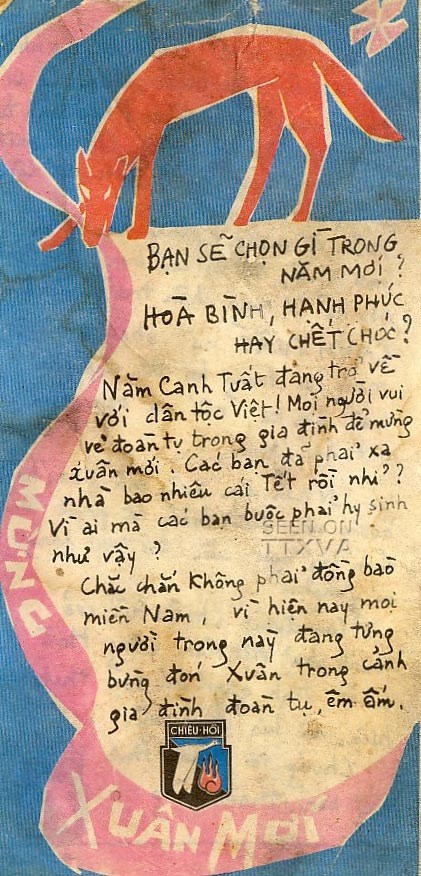 BẠN SẼ CHỌN GÌ TRONG
NĂM MỚI?
HOÀ BÌNH, HẠNH PHÚC
HAY CHẾT CHÓC?
Năm Canh Tuất đang trở về
với dân tộc Việt! Mọi người vui
vẻ đoàn tụ trong gia đình để mừng
xuân mới. Các bạn đã phải xa
nhà bao nhiêu cái Tết rồi nhỉ?
Vì ai mà các bạn buộc phải hy sinh
như vậy?
SEEN ON
TTXVA
Chắc chắn không phải đồng bào
miền Nam, vì hiện nay mọi
người trong này đang tưng
bừng đón Xuân trong cảnh
gia đình đoàn tụ, êm ấm.
CHIÊU-HỒI
MỪNG
XUÂN MỚI